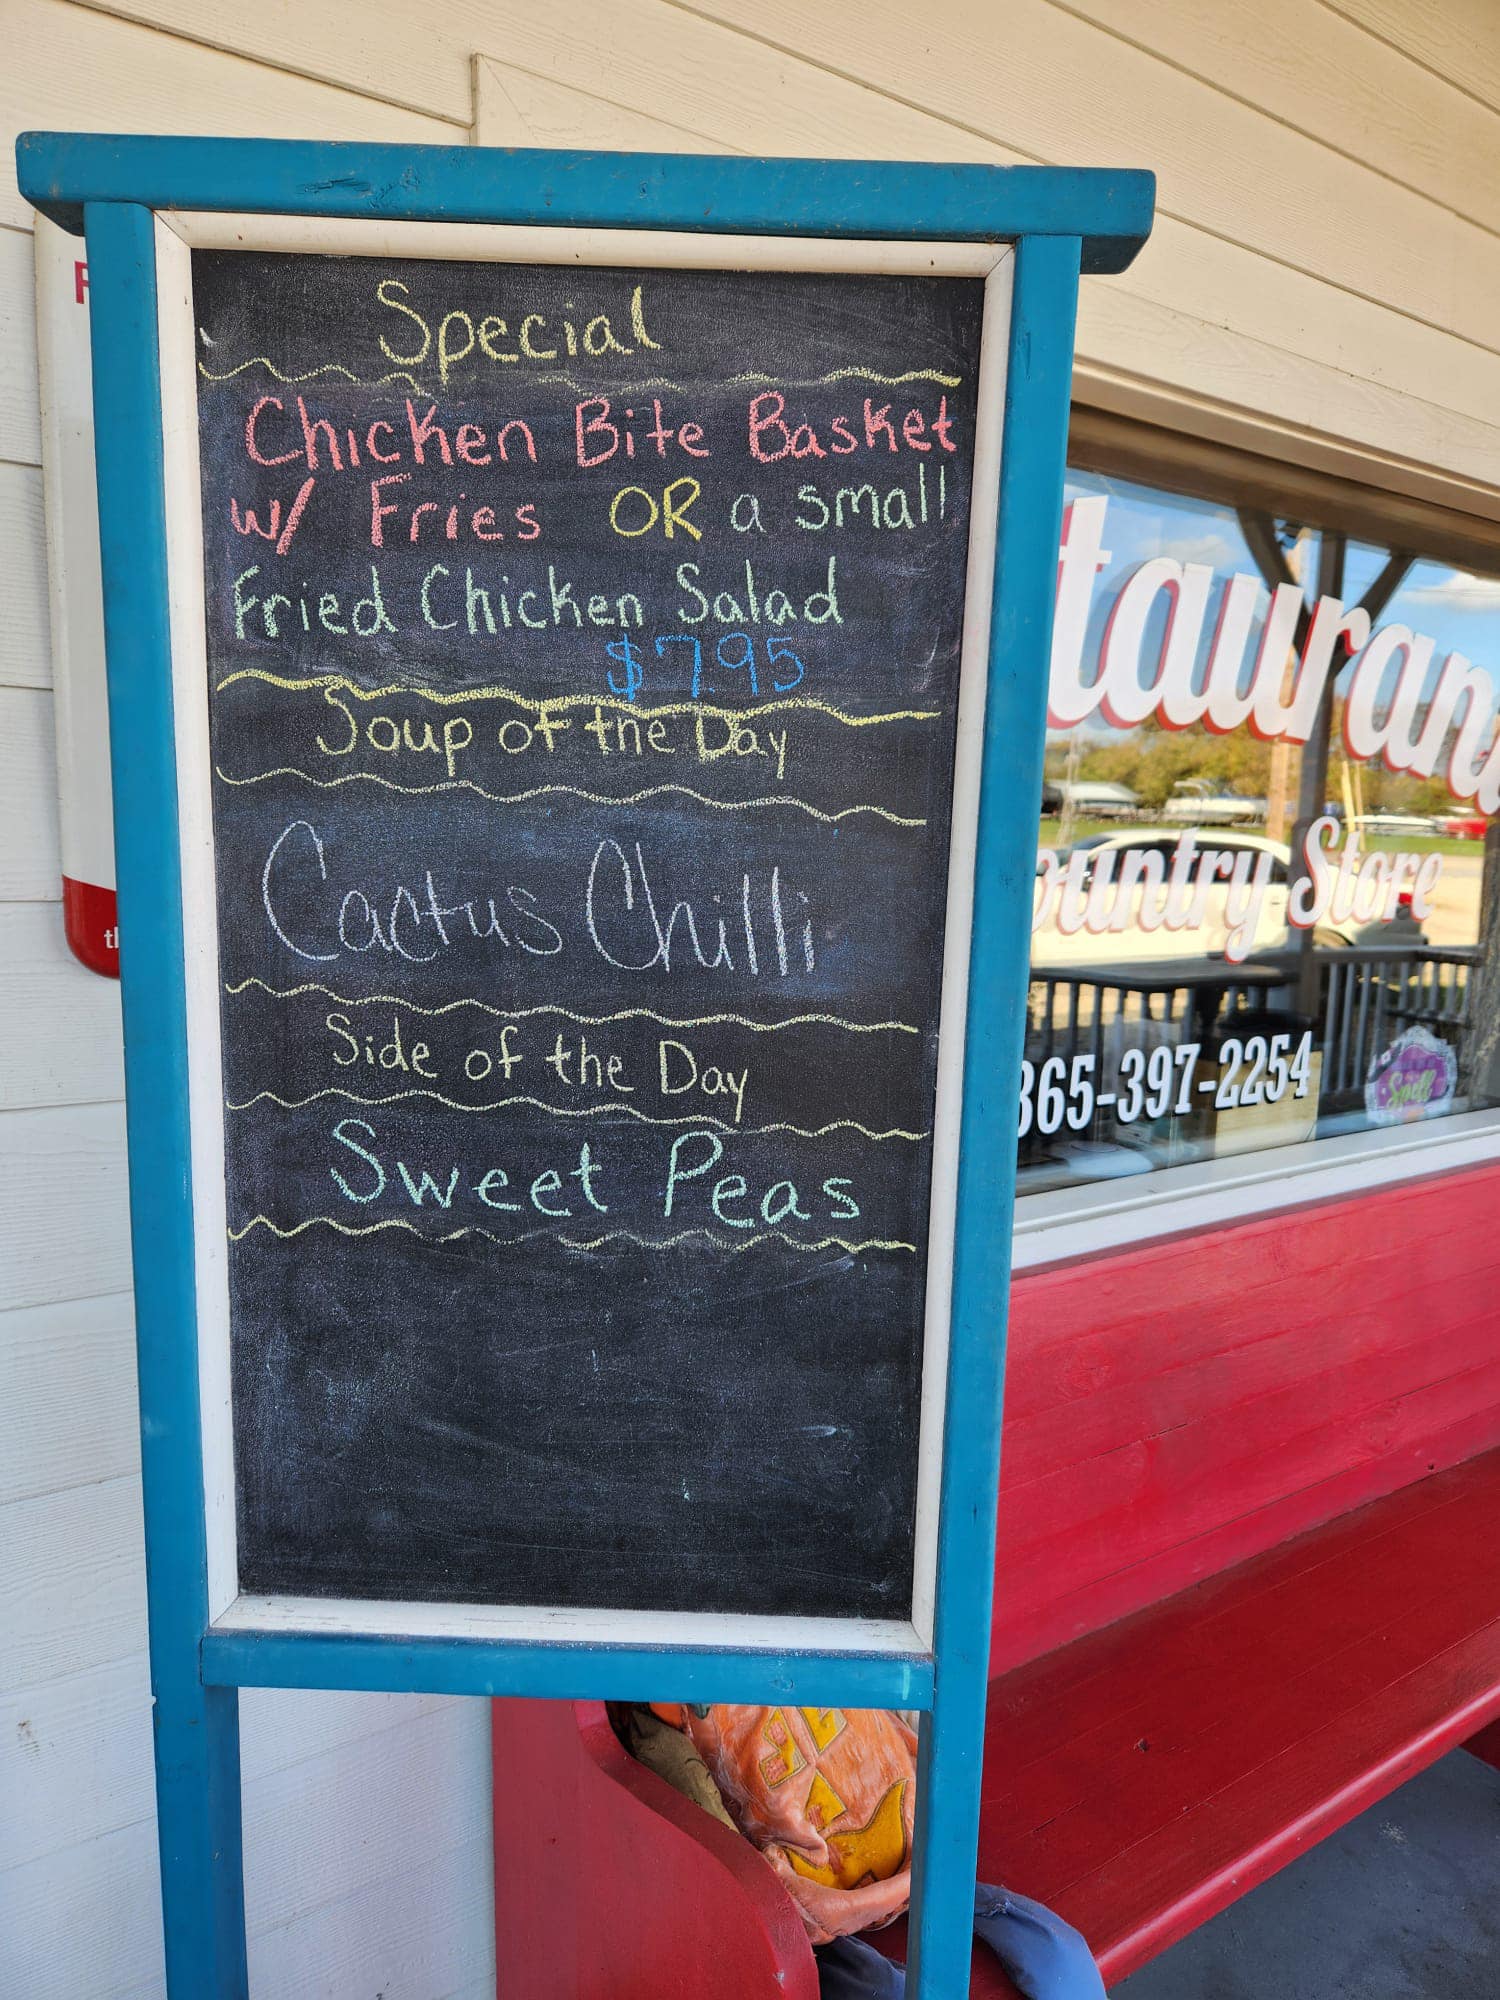 Special
Chicken Bite Basket
w/ Fries OR a small
Fried Chicken Salad
$7.95
Soup of the Day
Cactus Chilli
Side of the Day
Sweet Peas
taurant
ountry Store
865-397-2254
Spell